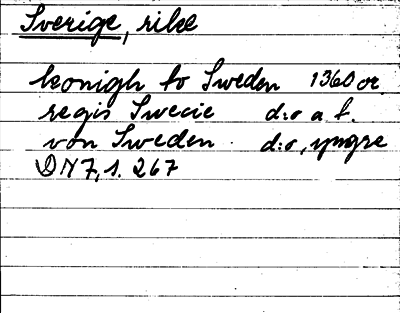 Sverige, rike
konigh to Sweden 1360 or.
regis Swecie d:o a f.
von Sweden d:o, yngre
DN 7, s. 267